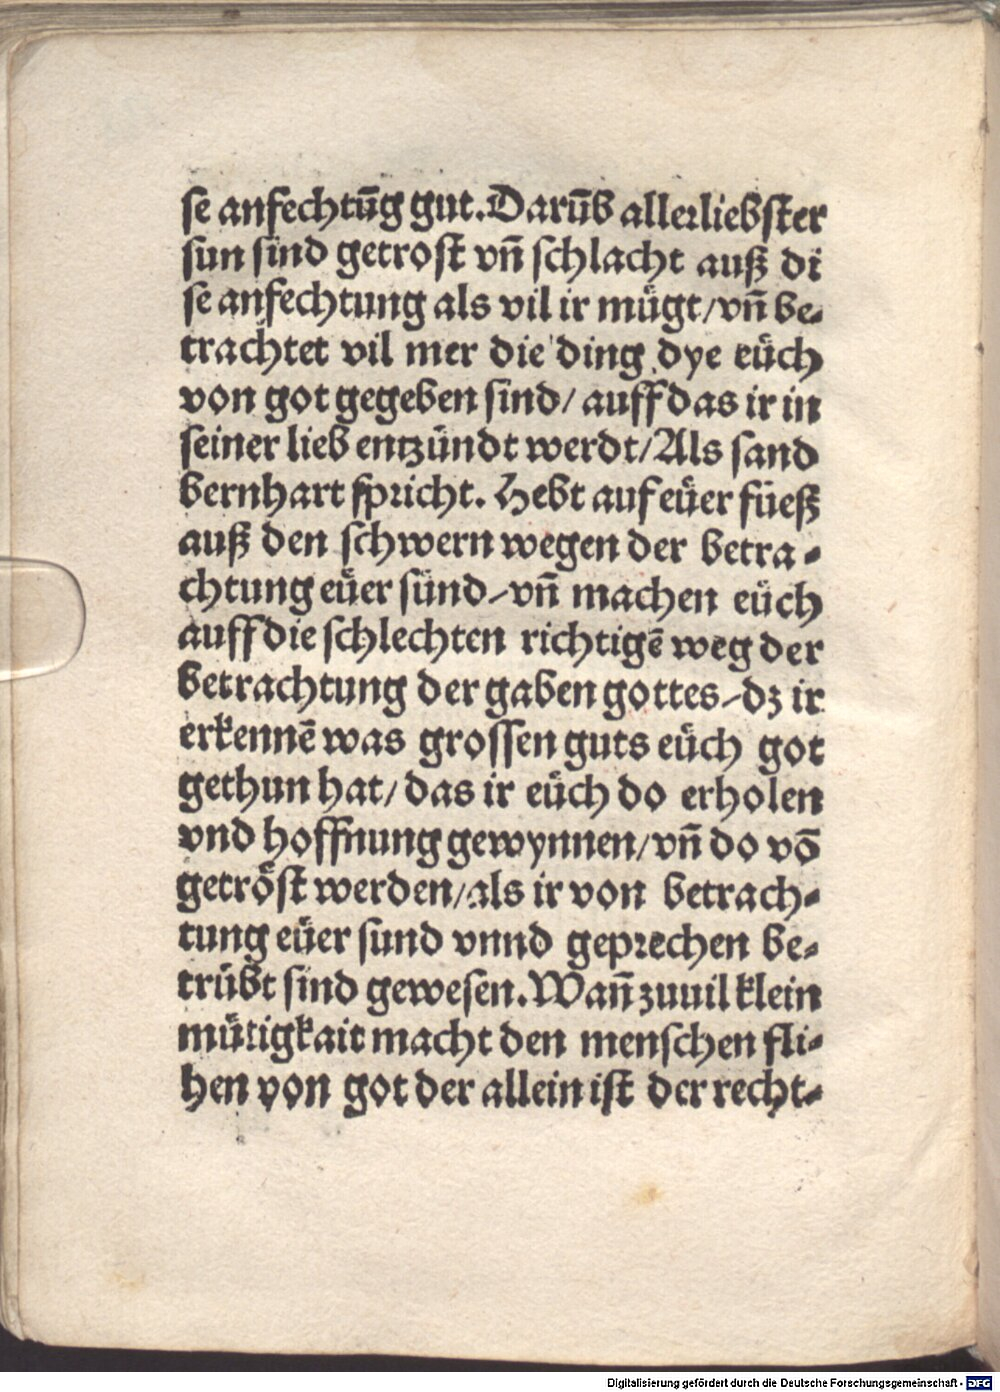 se anfechtūg gut. Darūb allerliebster
sun sind getrost vn̄ schlacht auß di
se anfechtung als vil ir mügt/vn̄ be⸗
trachtet vil mer die ding dye eüch
von got gegeben sind/ auff das ir in
seiner lieb entzündt werdt/Als sand
bernhart spricht. Hebt auf eüer füeß
auß den schwern wegen der betra⸗
chtung eüer sünd/vn̄ machen eüch
auff die schlechten richtigē weg der
betrachtung der gaben gottes/dz ir
erkennē was grossen guts eüch got
gethun hat/das ir eüch do erholen
vnd hoffnung gewynnen/vn̄ do vō
getröst werden/als ir von betrach⸗
tung eüer sund vnnd geprechen be⸗
trübt sind gewesen. Wan̄ zuuil klein
mütigkait macht den menschen fli⸗
hen von got der allein ist der recht⸗
Digitalisierung gefördert durch die Deutsche Forschungsgemeinschaft - DFG